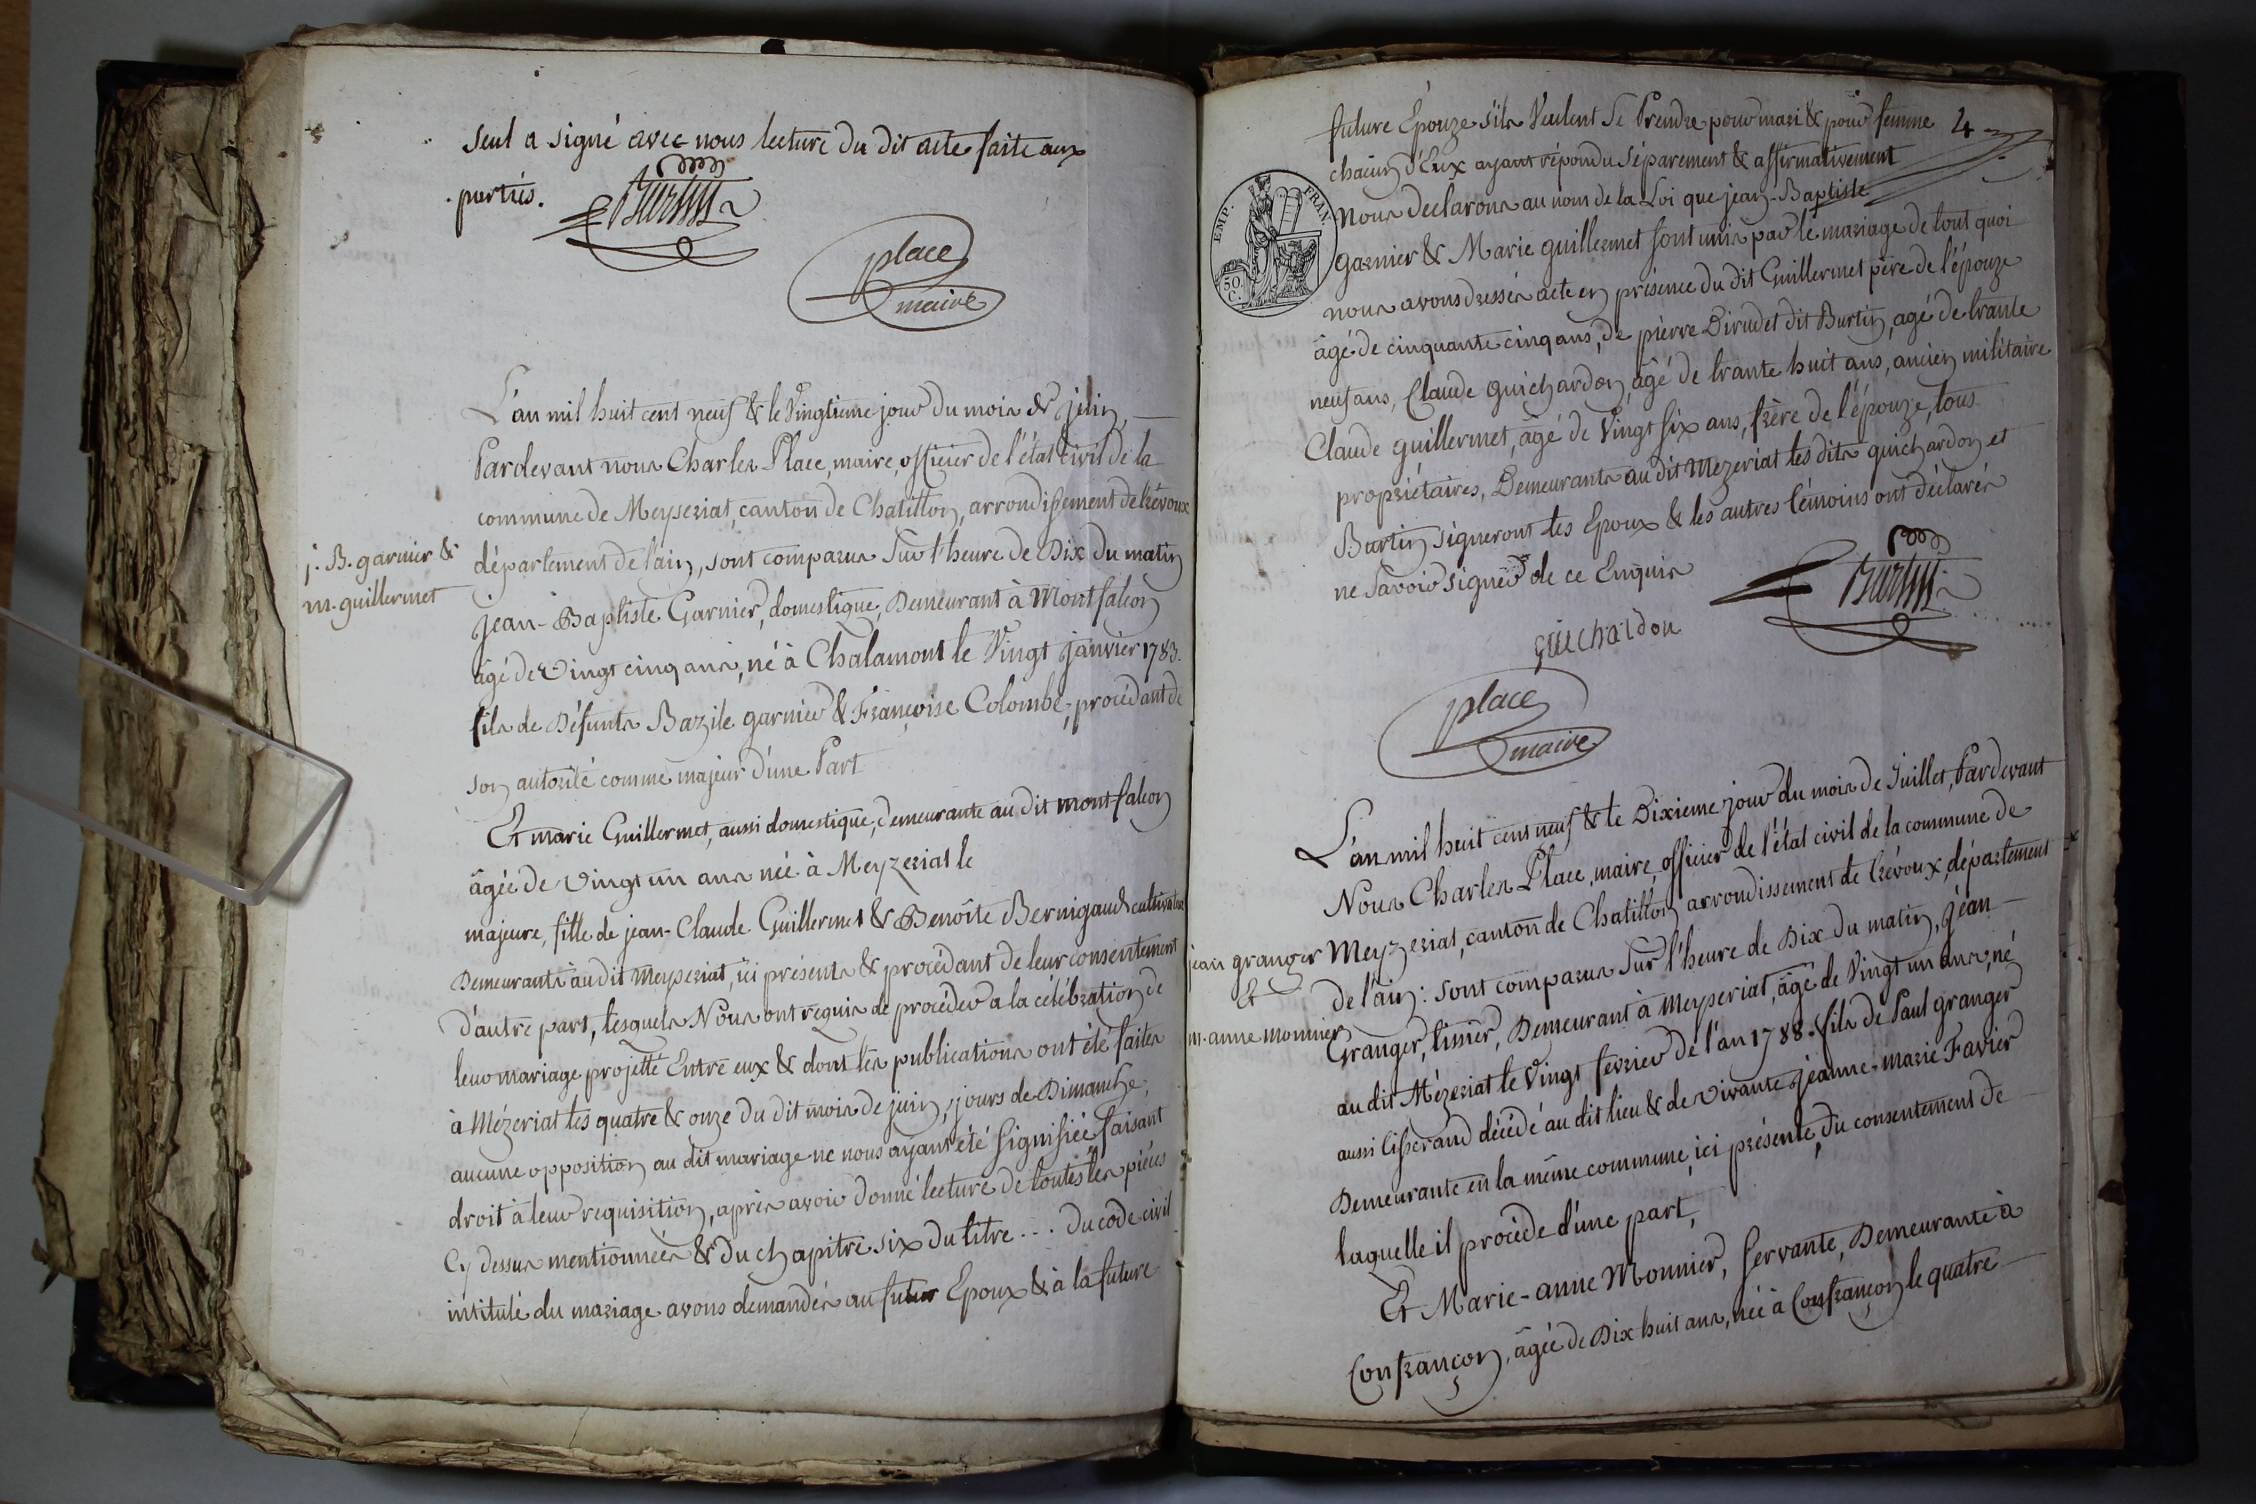 Seul a signé avec nous lecture du dit acte faite aux
parties.
Burtin
place
maire
L'an mil huit cent neuf & le Vingtieme jour du mois de juin
Pardevant nous Charles Place, maire, officier de l'état civil de la
commune de Meyseriat, canton de Chatillon, arrondissement de trévoux
j. B. garnier &
m. guillermet
département de l'ain, sont comparus sur l'heure de Dix du matin
jean-Baptiste Garnier, domestique, Demeurant à Montfalcon
agé de Vingt cinq ans, né à Chalamont le Vingt janvier 1783.
fils de Défunts Bazile garnier & Françoise Colombe, procédant de
son autorité comme majeur d'une Part
Et marie Guillermet, aussi domestique, demeurante au dit montfalcon
âgée de vingt un ans née à Meyzeriat le
majeure, fille de jean-Claude Guillermet & Benoîte Bernigaud cultivateurs
Demeurants àu dit Meyseriat, ici présents & procédant de leur consentement
d'autre part, lesquels Nous ont requis de procéder a la célébration de
leur mariage projetté Entre eux & dont les publications ont été faites
à Mézeriat les quatre & onze du dit mois de juin, jours de Dimanche,
aucune opposition au dit mariage ne nous ayant été signifiée, faisant
droit à leur requisition, après avoir donné lecture de toutes les pièces
Cy dessus mentionnées & du chapitre six du titre ... du code civil
intitulé du mariage avons demandés au futur Epoux & à la future
4
future Épouze s'ils Veulent Se Prendre pour mari & pour femme
chacun d'Eux ayant répondu séparement & affirmativement
Nous declarons au nom de la Loi que jean-Baptiste
EMP. FRAN
50.
C.
garnier & Marie guillermet sont unis par le mariage de tout quoi
nous avons dressés acte en présence du dit Guillermet père de l'épouze
âgé de cinquante cinq ans, de pièrre Dirudet dit Burtin, agé de trante
neuf ans, Claude Guichardon, âgé de trante huit ans, ancien militaire
Claude guillermet, âgé de Vingt six ans, frère de l'épouze, tous
propriétaires, Demeurants au dit Mézeriat les dits guichardon et
Burtin signeront les Epoux & les autres témoins ont déclarés
ne Savoir signer de ce Enquis
Burtin
guichardon
place
maire
L'an mil huit cent neuf & le Dixieme jour du mois de Juillet, Pardevant
Nous Charles Place, maire, officier de l'état civil de la commune de
jean granger
Et
m. anne monnier
Meyzeriat, canton de Chatillon arrondissement de trévoux, département
de l'ain: sont comparus sur l'heure de Dix du matin, jéan
Granger, tissier, Demeurant à Meyseriat, âgé de Vingt un ans, né
au dit Mézeriat le Vingt fevrier de l'an 1788. fils de Paul granger
aussi tisserand décédé au dit lieu & de vivante jéanne-marie Favier
Demeurante en la même commune, ici présente, du consentement de
laquelle il procède d'une part,
Et Marie-anne Monnier, servante, Demeurante à
Confrançon, âgée de Dix huit ans, née à Confrançon le quatre